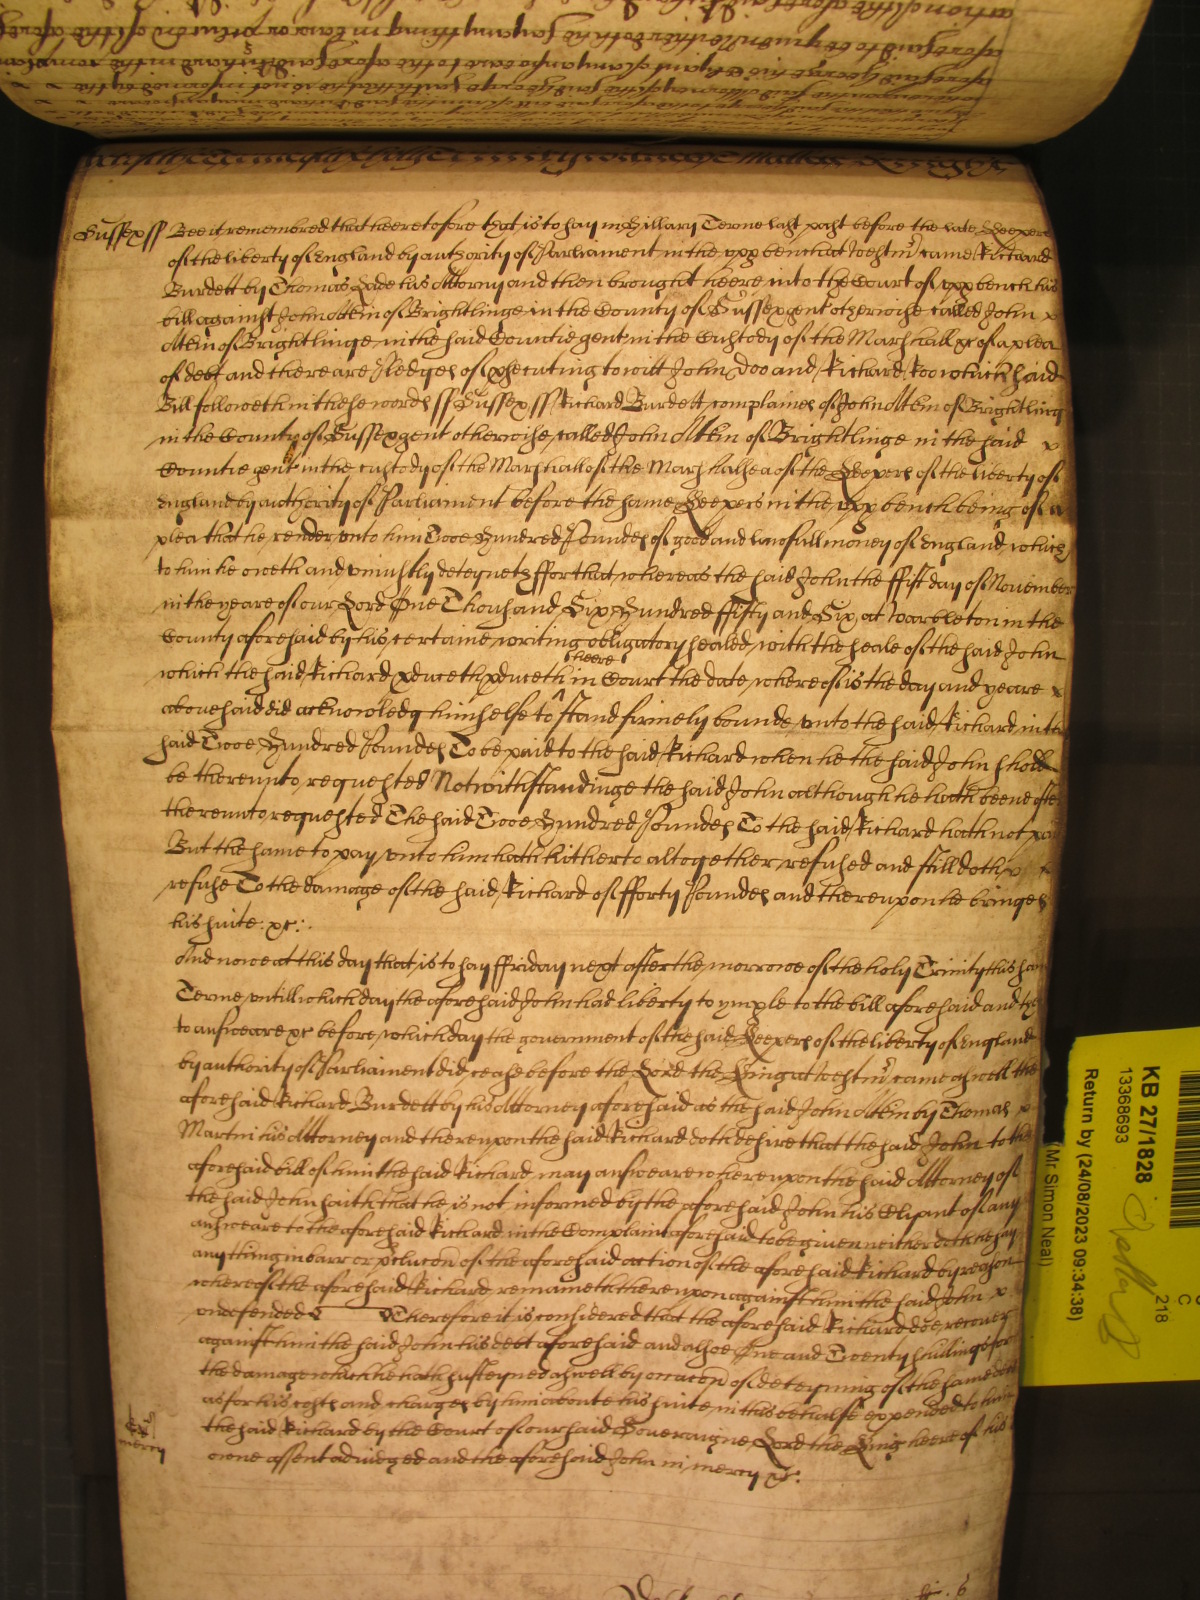 Sussex ss Bee it remembred that heeretofore that is to say in Hillary Terme last past before the late Keepers
of the liberty of England by authority of Parliament in the vpp bench at Westmr came Richard
Burdett by Thomas his Attorny and then brought heere into the Court of vpp bench his
bill against John Attkin of Brightlinge in the County of Sussex gent otherwise called John x
Attkin of Brightlinge in the said Countie gent in the Custody of the Marshall &c of a plea
of debt and there are Pledges of prosecuting to witt John Doo and Richard Roo which said
Bill followeth in these words ss Sussex ss Richard Burdett complaines of John Attkin of Brightling
in the County of Sussex gent otherwise called John Attkin of Brightlinge in the said x
Countie gent in the custody of the Marshall of the Marshalsea of the Keepers of the liberty of
England by authority of Parliament before the same Keepers in the vpp bench being of a
plea that he render vnto him Twoe Hundred Poundes of good and lawfull money of England which
to him he oweth and vniustly deteyneth ffor that whereas the said John the ffist day of November
in the yeare of our Lord One Thousand Six Hundred ffifty and Six at Warbleton in the
County aforesaid by his certaine writing obligatory sealed with the seale of the said John
which the said Richard pduceth pduceth heere in Court the date whereof is the day and yeare x
abouesaid did acknowledg himselfe to stand firmely bounde vnto the said Richard in the
said Twoe Hundred Poundes To be paid to the said Richard when he the said John shold
be therevnto requested Notwithstandinge the said John although he hath beene often
therevnto requested The said Twoe Hundred Poundes To the said Richard hath not pa
But the same to pay vnto him hath hitherto altogether refused and still doth x x
refuse To the damage of the said Richard of fforty Poundes and therevpon he bringes
his suite &c:
And nowe at this day that is to say ffriday next after the morrowe of the holy Trinity this sam
Terme vntill which day the aforesaid John had liberty to ymple to the bill aforesaid and the
to answeare &c before which day the government of the said Keepers of the liberty of England
by authority of Parliament did cease before the Lord the King at Westmr came aswell the
aforesaid Richard Burdett by his Attorney aforesaid as the said John Attkin by Thomas x
Martin his Attorney and therevpon the said Richard doth desire that the said John to the
aforesaid bill of him the said Richard may answeare wherevpon the said Attorney of
the said John saith that he is not informed by the aforesaid John his Clyant of any
answeare to the aforesaid Richard in the Complaint aforesaid to be given neither doth he say
any thing in barr or pclucon of the aforesaid action of the aforesaid Richard by reason
whereof the aforesaid Richard remaineth therevpon against him the said John x
vndefended Therefore it is considered that the aforesaid Richard doe recover
against him the said John his debt aforesaid and alsoe One and Twenty shillings for
the damage which he hath susteyned aswell by occacon of deteyning of the same debt
as for his costs and charges by him about his suite in this behalfe expended to him
the said Richard by the Court of our said Soveraigne Lord the King heere of his
owne assent adiudged and the aforesaid John in mercy &c:
mercy
KB 27/1828
13368693
Return by (24/08/2023 09:34:38)
(Mr Simon Neal)
218
C